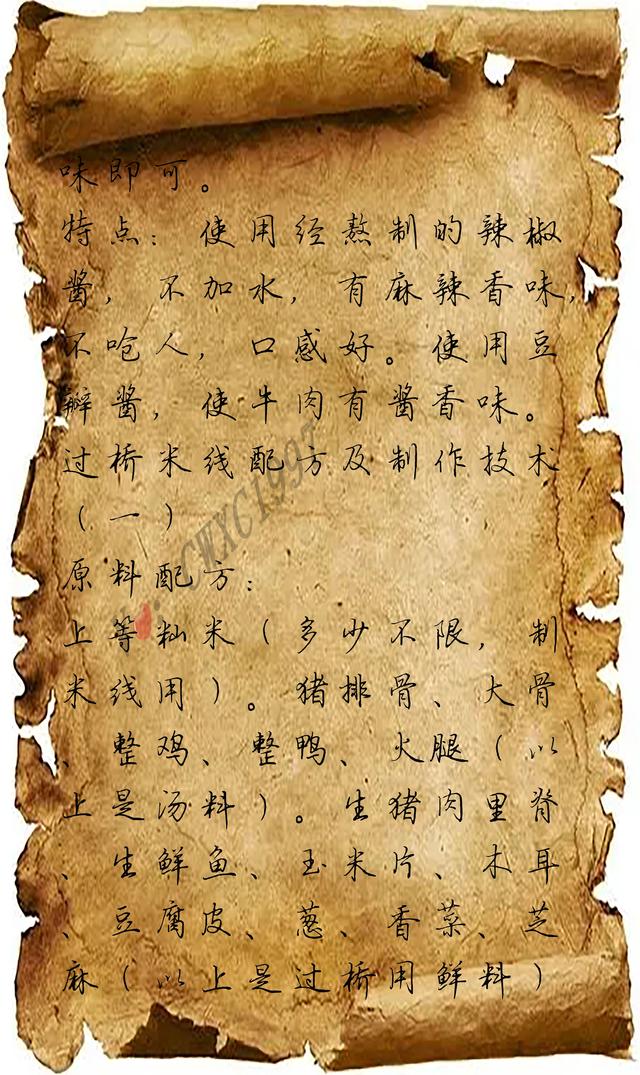 味即可。
特点：使用经熬制的辣椒
酱，不加水，有麻辣香味，
不呛人，口感好。使用豆
瓣酱，使牛肉有酱香味。
过桥米线配方及制作技术
（一）
原料配方：
上等籼米（多少不限，制
米线用）。猪排骨、大骨
、整鸡、整鸭、火腿（以
上是汤料）。生猪肉里脊
、生鲜鱼、玉米片、木耳
、豆腐皮、葱、香菜、芝
麻（以上是过桥用鲜料）